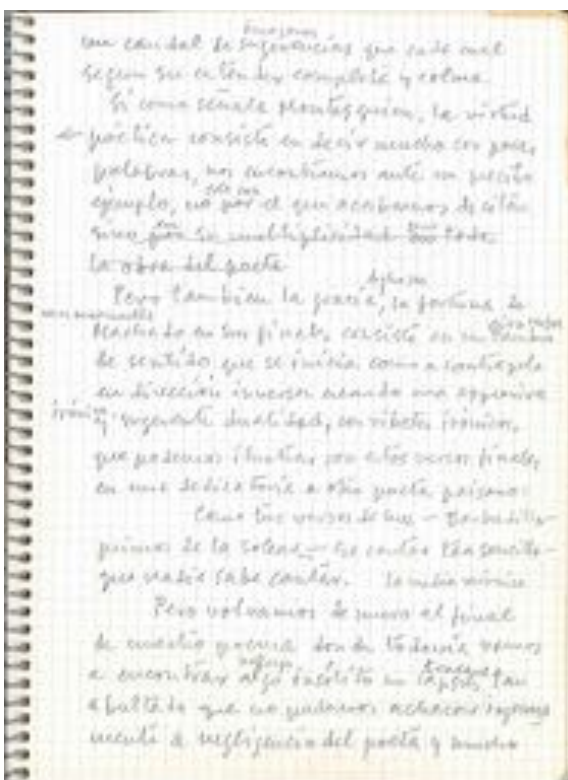 un caudal de sugerencias que cada cual
según su entender completa y colma.
Si como señala Montesquieu, la virtud
poética consiste en decir mucho con pocas
palabras, nos encontramos ante un
ejemplo, no por el que acabamos de citar
sino por su multiplicidad toda
la obra del poeta
Pero también la gracia, la fortuna de
Machado en sus finales consiste en un
de sentido que se inicia como a contrapelo
en dirección inversa creando una
y sugerente dualidad, con ribetes irónicos,
que podemos ilustrar con estos versos finales
en una dedicatoria a otro poeta paisano:
Como tus versos de
primos de la soleá — ese cantar tan sencillo —
que nadie sabe cantar.
Pero volvamos de nuevo al final
de nuestro poema donde todavía vamos
a encontrar algo insólito un lapsus tan
abultado que no podemos achacar
mente a negligencia del poeta y mucho